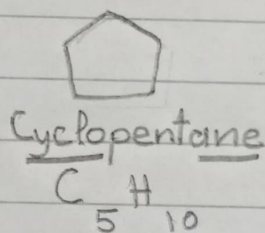 Cyclopentane
C5H10